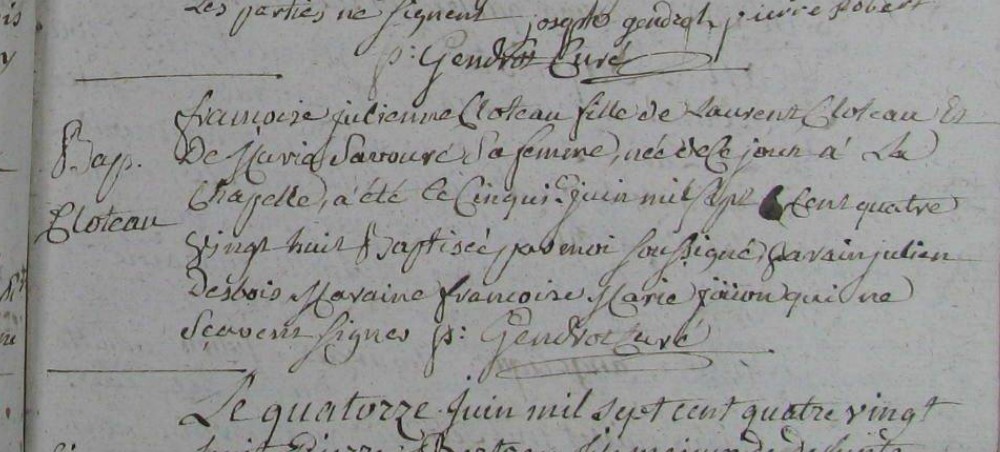 Les parties ne signent joseph gendrot pierre Robert
p: Gendrot Curé
françoise julienne Cloteau fille de Laurent Cloteau Et
Bap. De Marie Savouré Sa femme, née de Ce jour à La
Chapelle, a été le Cinqui.e juin mil sept Cent quatre
Cloteau
vingt huit Baptisée par moi soussigné, parain julien
Desbois Maraine francoise Marie qui ne
Scavent signer p: Gendrot Curé
Le quatorze juin mil sept cent quatre vingt
huit Pierre